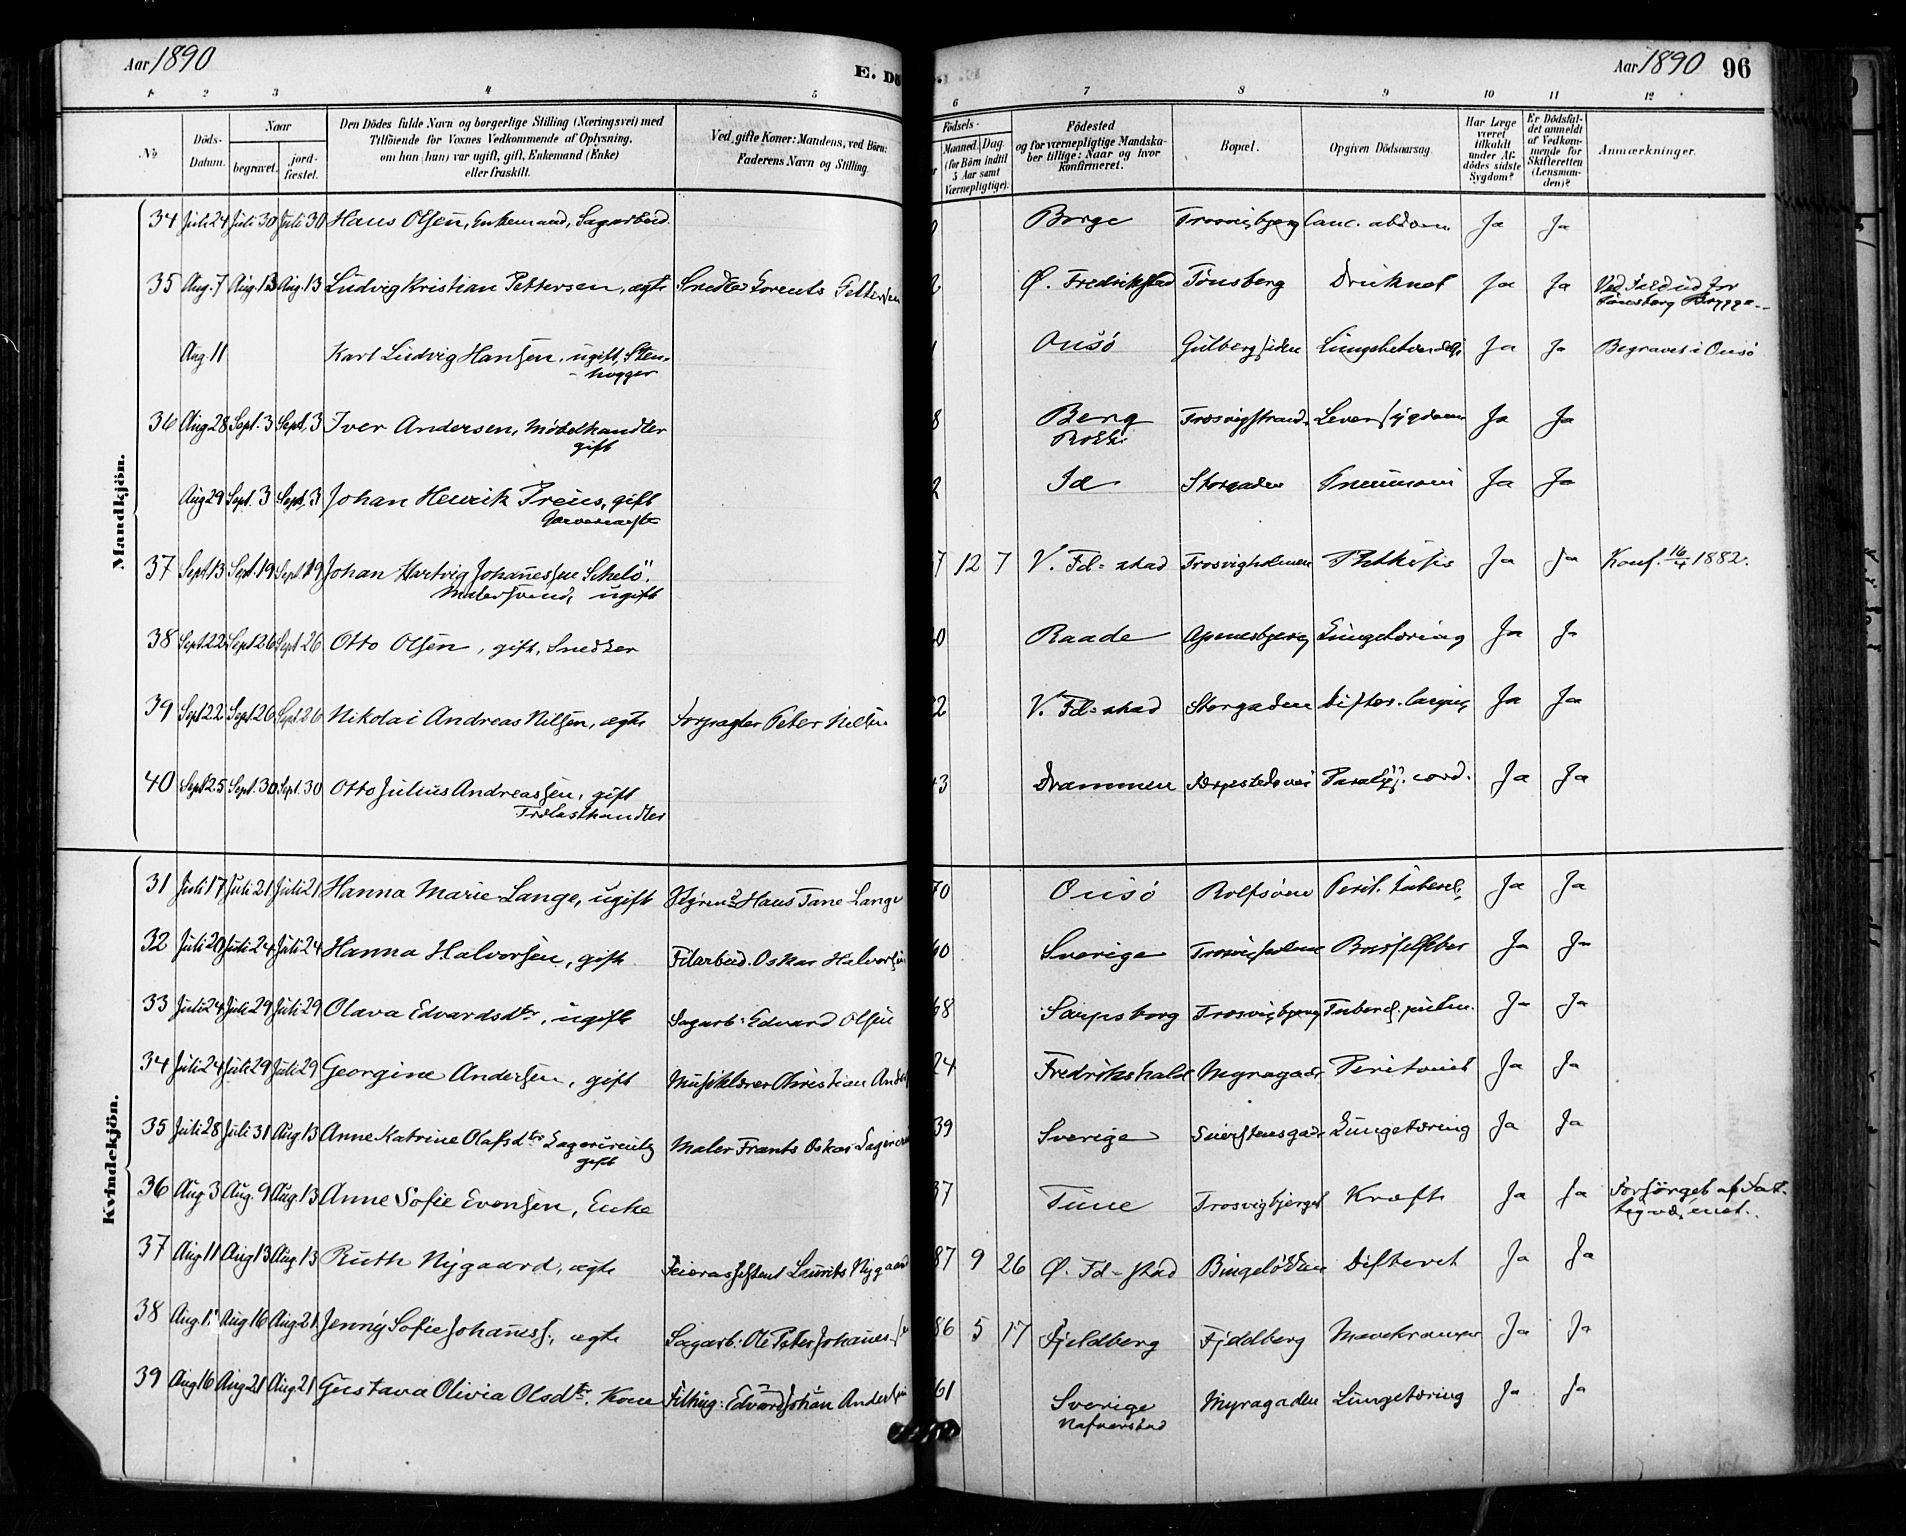 Aar 1890
E. Dö
Aar 1890 96
1 2 3 4 5 6 7 8 9 10 11 12
No
Döds-Datum.
Naar
begravet.
jord-fæstet.
Den Dödes fulde Navn og borgerlige Stilling (Næringsvei) med
Tilföiende for Voxnes Vedkommende af Oplysning,
om han (hun) var ugift, gift, Enkemand (Enke)
eller fraskilt.
Ved gifte Koner: Mandens, ved Börn:
Faderens Navn og Stilling.
Födsels-
Maaned. Dag.
(for Börn indtil
5 Aar samt
Værnepligtige).
Födested
og for værnepligtige Mandska-
ber tillige: Naar og hvor
Konfirmeret.
Bopæl.
Opgiven Dödsaarsag.
Har Læge
været
tilkaldt
under Af-
dödes sidste
Sygdom?
Er Dödsfal-
det anmeldt
af Vedkom-
mende for
Skifteretten
(Lensman-
den)?
Anmærkninger.
Mandkjön.
34 Juli 24 Juli 30 Juli 30 Hans Olsen, Enkemand, Sagarbeid. Borge Trosvigbjerg Canc. abdom. Ja Ja
35 Aug. 7 Aug. 13 Aug. 13 Ludvig Kristian Pettersen, ægte Snedker Lorents Pettersen Ø. Fredrikstad Tönsberg Druknet Ja Ja Ved
Tönsberg Brygge
Aug. 11 Karl Ludvig Hansen, ugift, Sten-
hugger 1 Onsö Gulbergsiden Ja Ja Begravet i Onsö
36 Aug 28 Sept. 3 Sept. 3 Iver Andersen, Möbelhandler
gift 8 Berg
Rokke Trosvigstrand Leversygdom Ja Ja
Aug 29 Sept. 3 Sept. 3 Johan Henrik Preus, gift
2 Id Storgaden Pneumoni Ja Ja
37 Sept 13 Sept. 19 Sept 19 Johan Hartvig Johanessen Schelö
Malersvend, ugift 7 12 7 V. Fd-stad Trosvigholmen Phthisis Ja Ja Konf. 16/4 1882.
38 Sept 22 Sept 26 Sept 26 Otto Olsen, gift, Snedker 0 Raade Apenesbjerg Lungetæring Ja Ja
39 Sept 22 Sept 26 Sept 26 Nikolai Andreas Nilsen, ægte Peter Nilsen 2 V. Fd-stad Storgaden Difter. laryng. Ja Ja
40 Sept 25 Sept. 30 Sept. 30 Otto Julius Andreassen, gift
Trælasthandler 3 Drammen Færgestedsvei Paralys. cord. Ja Ja
Kvindekjön.
31 Juli 17 Juli 21 Juli 21 Hanna Marie Lange, ugift Hans Tane Lange 70 Onsö Rolfsöen Perit. tubercl. Ja Ja
32 Juli 20 Juli 24 Juli 24 Hanna Halvorsen, gift Oskar Halvorsen 60 Sverige Trosvigholmen Barselfeber Ja Ja
33 Juli 24 Juli 29 Juli 29 Olava Edvardsdtr, ugift Sagarb: Edvard Olsen 68 Sarpsborg Trosvigbjerg Tubercl. pulm. Ja Ja
34 Juli 24 Juli 29 Juli 29 Georgine Andersen, gift Musiklærer Christian Anders 24 Fredrikshald Myragaden Peritonit Ja Ja
35 Juli 28 Juli 31 Aug. 13 Anne Katrine Olafsdtr
gift Maler Frants Oskar 39 Sverige Lungetæring Ja Ja
36 Aug. 3 Aug. 9 Aug. 13 Anne Sofie Evensen, Enke 37 Tune Trosvigbjerget Kræft Ja Ja Forsörget af Fat-
tigvæsenet.
37 Aug 11 Aug 13 Aug. 13 Ruth Nygaard, ægte Laurits Nygaard 87 9 26 Ø. Fd-stad Difterit Ja Ja
38 Aug. 1 Aug 16 Aug. 21 Jenny Sofie Johaness., ægte Sagarb: Ole Peter Johanes-sen 86 5 17 Fjeldberg Fjeldberg Mavekramper Ja Ja
39 Aug 16 Aug 21 Aug. 21 Gustava Olivia Olsdtr. Kone Edvard Johan Andersen 61 Sverige
Nafverstad Myragaden Lungetæring Ja Ja